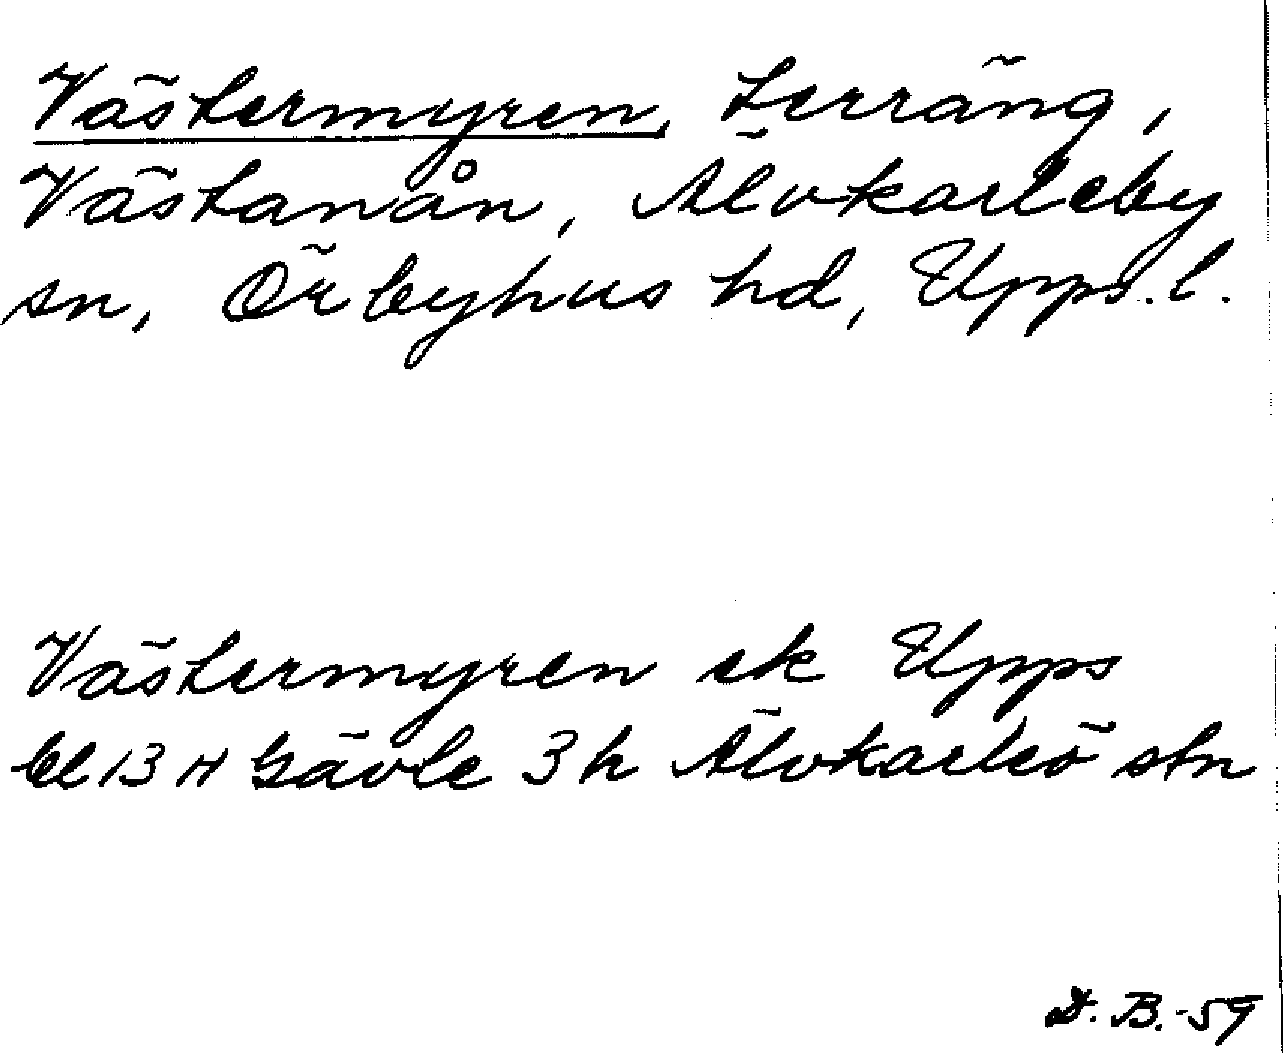 Västermyren, terräng,
Västanån, Älvkarleby
sn, Örbyhus hd, Upps.l.
Västermyren ek Upps
bl 13 H Gävle 3 h Älvkarleö stn
D. B. -59